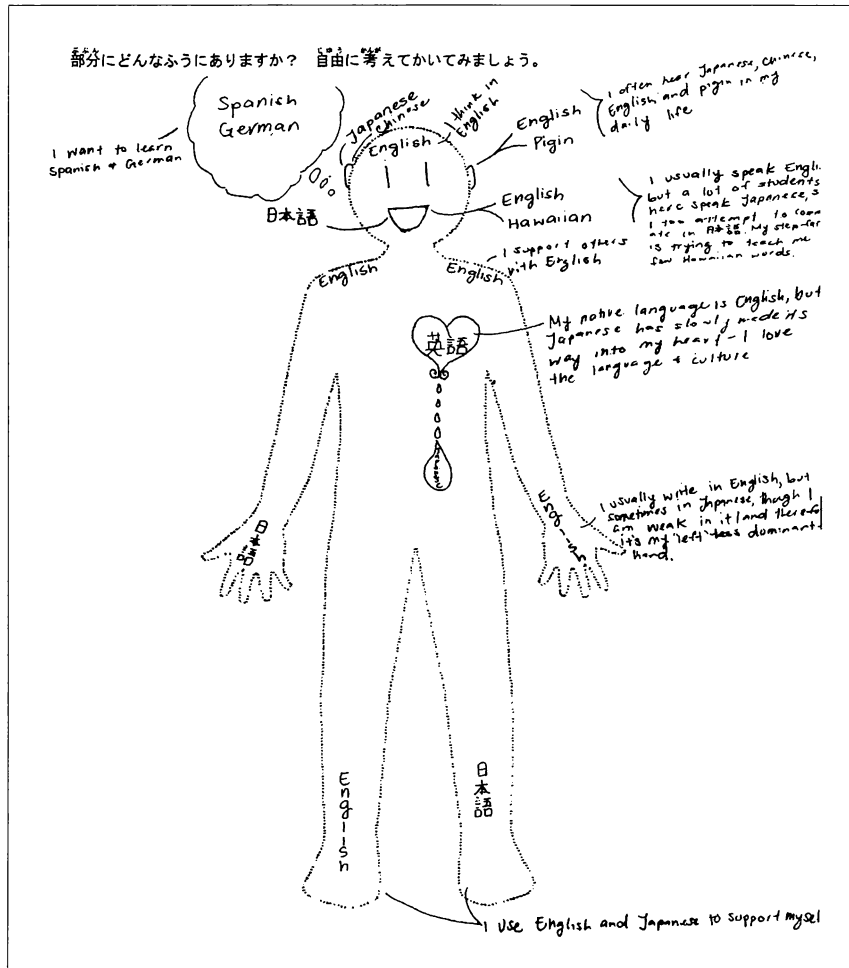 部分にどんなふうにありますか? 自由に考えてかいてみましょう。
Spanish
German
I want to learn
Spanish + German
Japanese
Chinese
English
I think in
English
English
Pigin
I often hear Japanese, Chinese,
English and pigin in my
daily life
日本語
English
Hawaiian
I usually speak Engli
but a lot of students
here speak Japanese, s
I too attempt to com
ate in 日本語. My step-fat
is trying to teach me
few Hawaiian words.
English
English
I support others
with English
英語
Japanese
My native language is English, but
Japanese has slowly made its
way into my heart - I love
the language + culture
日本語
English
I usually write in English, but
sometimes in Japanese, though I
am weak in it/and therefo
it's my left less dominant
hand.
English
日本語
I use English and Japanese to support mysel